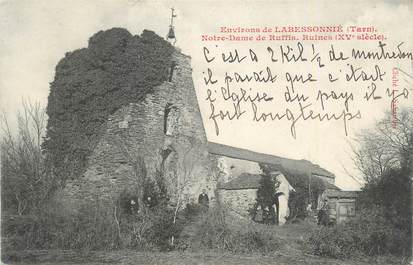 Environs de LABESSONNIÉ (Tarn).
Notre-Dame de Ruffis. Ruines (XVe siècle).
C'est à 2 kil ½ de montredon
il paraît que c'était
l'Eglise du pays il y a
fort longtemps
Cliché